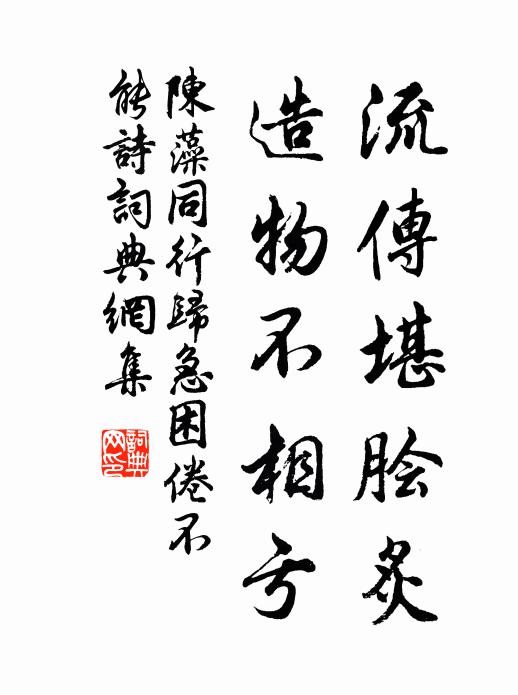 流傳堪膾炙
造物不相亏
陳藻同行歸急困倦不
能詩詞典網集
詞典網印